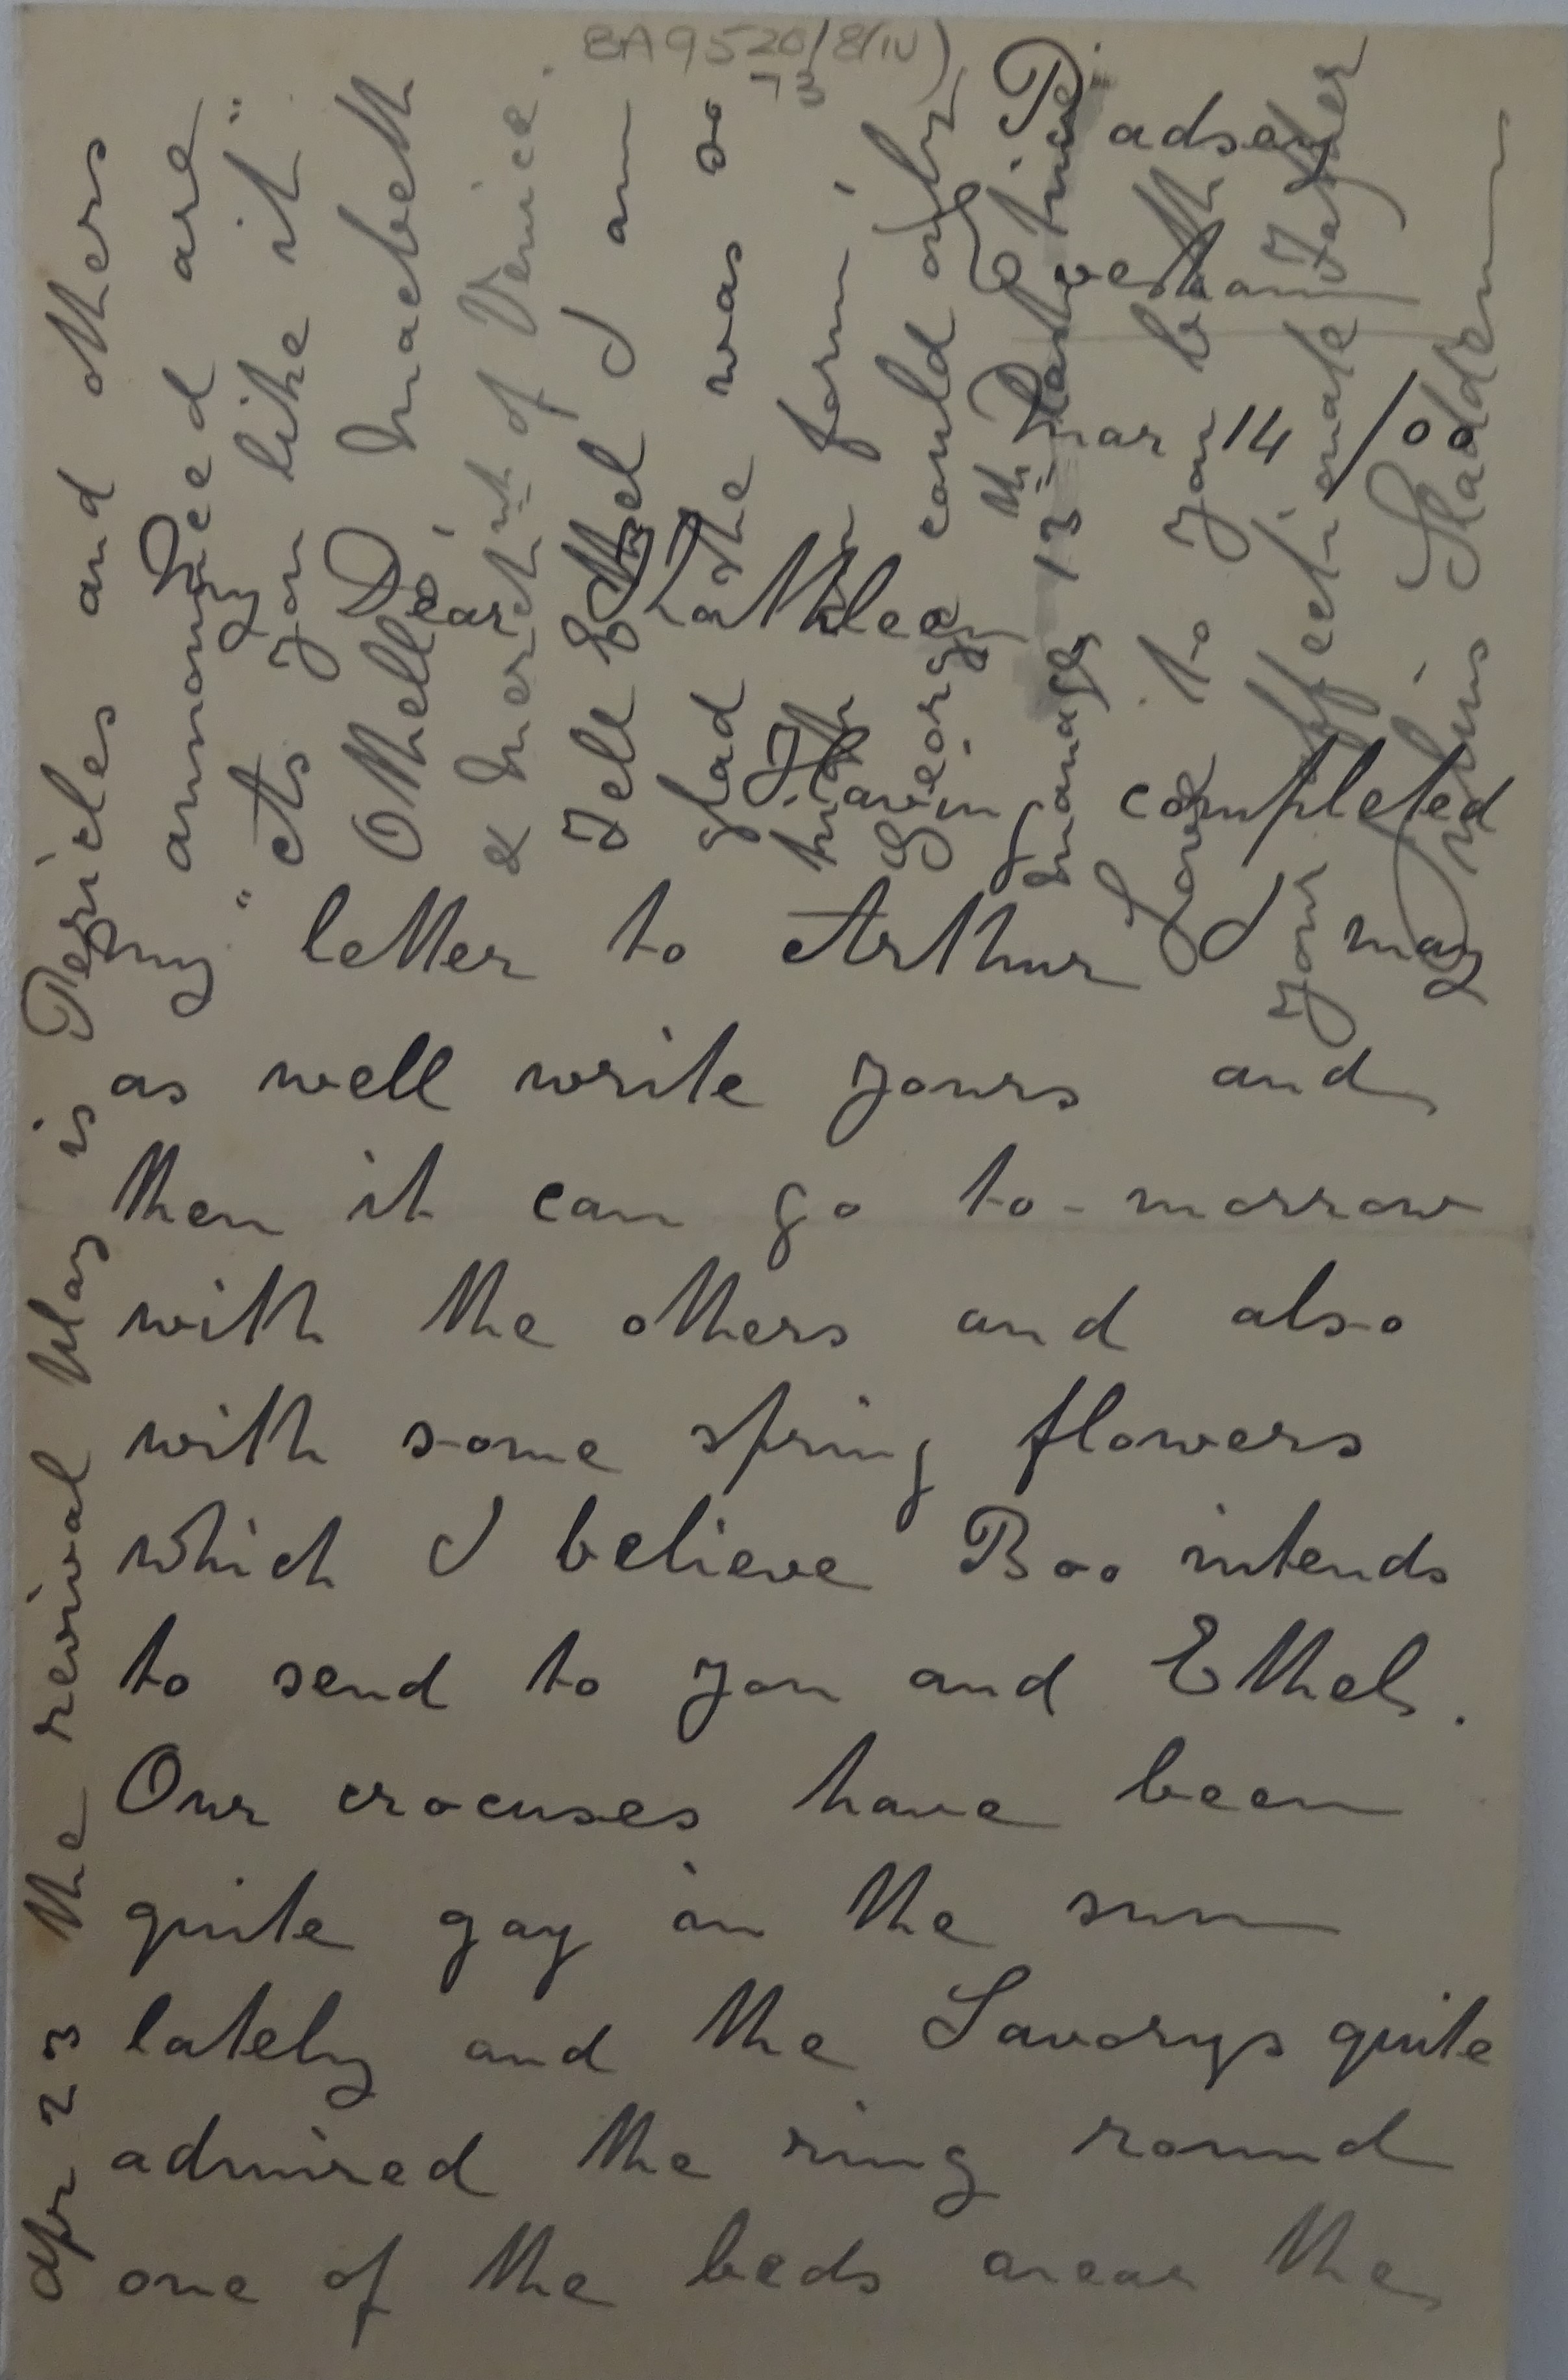 BA9520/8/(iv)
73
Badsey
Evesham
Mar 14 / 00
My Dear Kathleen
Having completed
my letter to Arthur I may
as well write yours and
then it can go to-morrow
with the others and also
with some spring flowers
which I believe Boo intends
to send to you and Ethel.
Our crocuses have been
quite gay in the sun
lately and the Savorys quite
admired the ring round
one of the beds near the
Apr 23 the revival play is Pericles and others
announced are
"As you like it"
Othello, Macbeth
& Mercht of Venice.
Tell Ethel I am
glad she was so
high in form,
George could only
manage 13th last time
Love to you both
Your affectionate Father
Julius Sladden